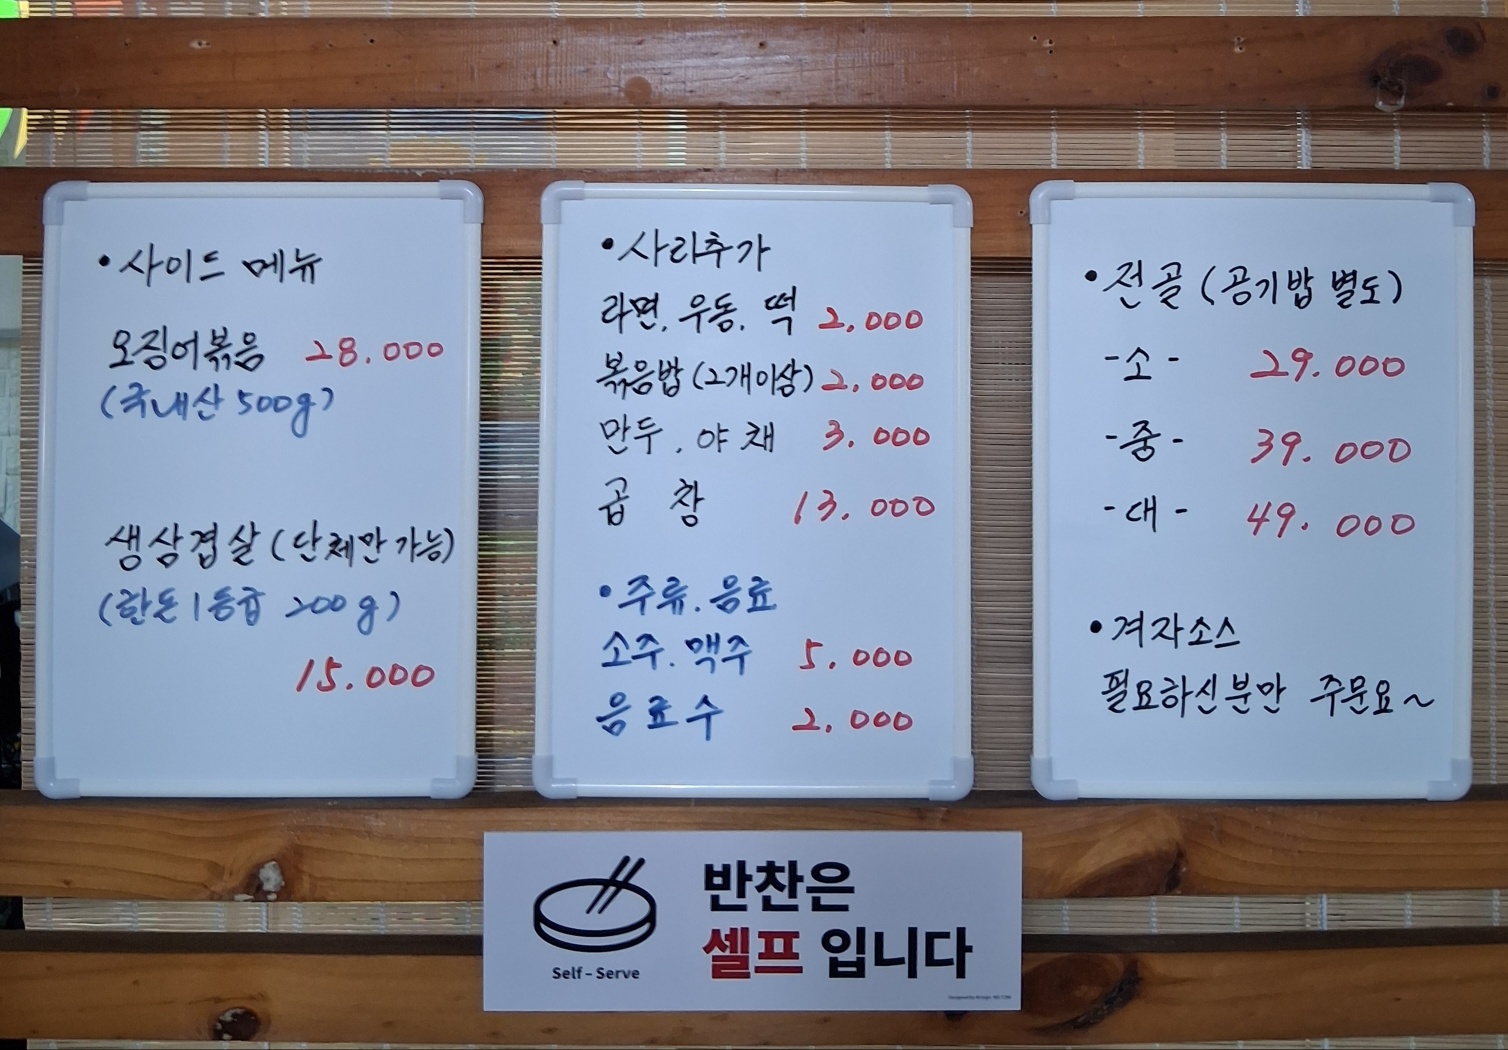 • 사이드 메뉴
오징어볶음 28.000
(국내산 500g)
생삼겹살 (단체만 가능)
(한돈 1등급 200g)
15.000
• 사리추가
라면. 우동. 떡 2,000
볶음밥 (2개이상) 2.000
만두. 야채 3.000
곱 창 13.000
• 주류. 음료
소주. 맥주 5.000
음료수 2.000
• 전골 (공기밥 별도)
-소- 29.000
-중- 39.000
-대- 49.000
• 겨자소스
필요하신분만 주문요~
반찬은
셀프 입니다
Self-Serve